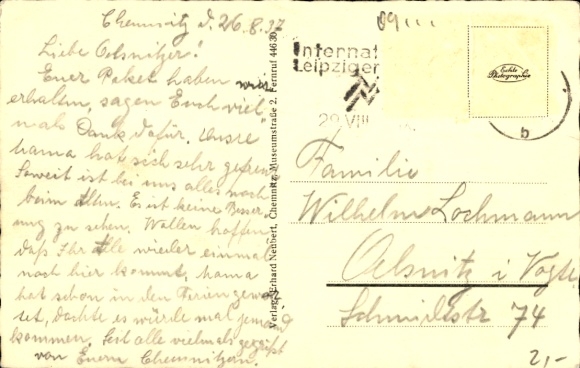 Chemnitz d. 26.8.37
Liebe Oelsnitzer!
Euer Paket haben wir
erhalten, sagen Euch viel
mals Dank dafür. Unsre
hama hat sich sehr gefreut
Soweit ist bei uns alles noch
beim Alten. Es ist keine Besser
ung zu sehen. Wollen hoffen,
daß Ihr Alle wieder einmal
noch hier kommt, hama
hat schon in den Ferien gewar
tet, dachte es würde mal jemand
kommen. Seit alle vielmals gegrüßt
von Euern Chemnitzern.
Verlag: Erhard Neubert, Chemnitz, Museumstraße 2, Fernruf 44630
09
Internat
Leipziger
29 VIII
b
Echte
Photographie
Familie
Wilhelm Lochmann
Oelsnitz i Vogtl
Schmidtstr 74
2,-